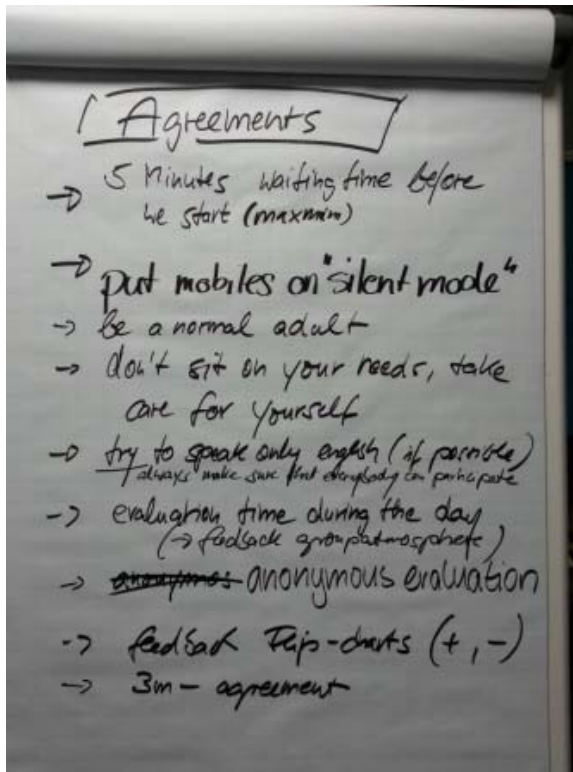 Agreements
→ 5 Minutes waiting time before
we start (maxmim)
→ put mobiles on "silent mode"
→ be a normal adult
→ don't sit on your needs, take
care for yourself
→ try to speak only english (if possible)
always make sure that everybody can participate
→ evaluation time during the day
(→ feedback groupatmosphere)
→ anonymos anonymous evaluation
→ feedback Flip-charts (+, -)
→ 3m - agreement